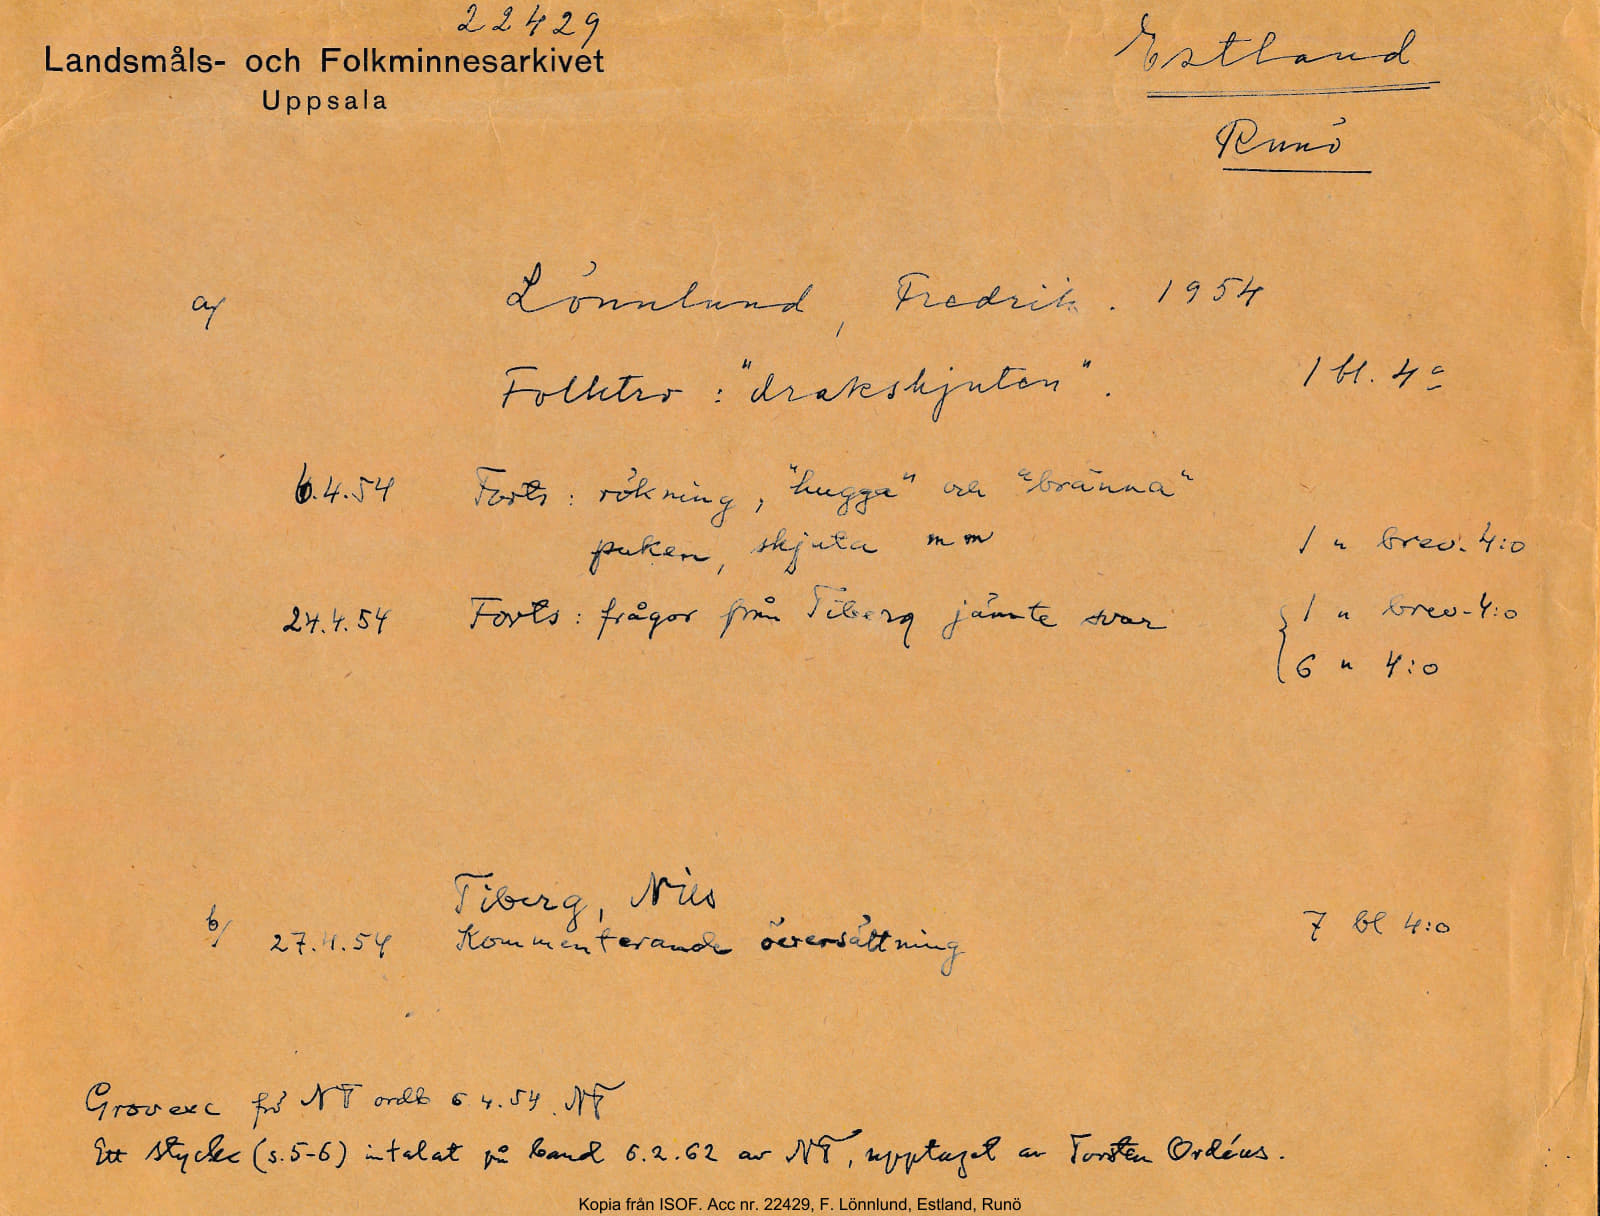 22429
Landsmåls- och Folkminnesarkivet
Uppsala
Estland
Runö
a/ Lönnlund, Fredrik. 1954
Folktro: "drakskjuten". 1 bl. 4o
6.4.54 Forts: rökning, "hugga" och "bränna"
puken, skjuta mm 1 " brev. 4:o
24.4.54 Forts: frågor från Tiberg jämte svar 1 " brev- 4:o
6 " 4:o
Tiberg, Nils
b/ 27.4.54 Kommenterande översättning 7 bl 4:o
Grovexc NT ordb 6 4.54. NT
Ett stycke (s. 5-6) intalat på band 6.2.62 av NT, upptaget av Torsten Ordéus.
Kopia från ISOF. Acc nr. 22429, F. Lönnlund, Estland, Runö